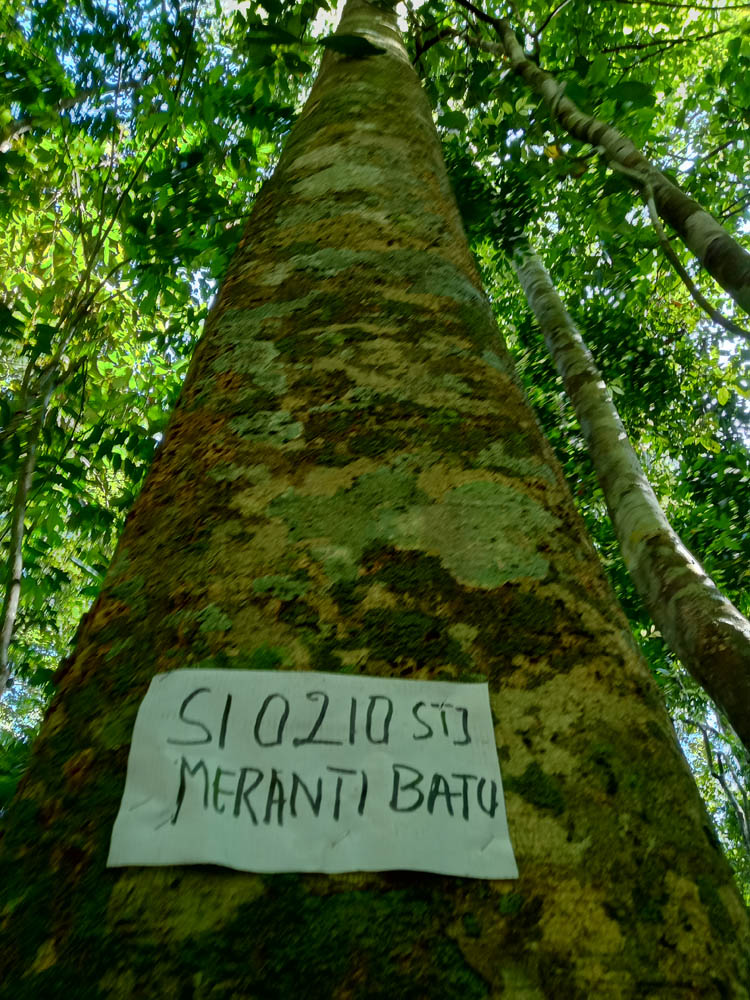 SI 0210 STJ
MERANTI BATU